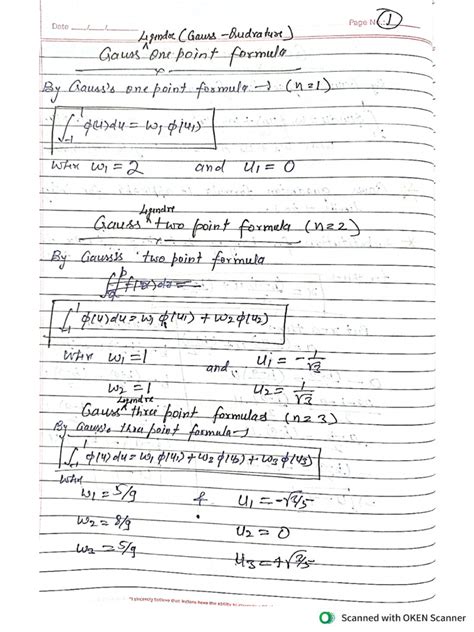 Date
Page No. 1
Legendre (Gauss - Qudrature)
Gauss ^ One point formula
By Gauss's one point formula → (n=1)
∫₋₁¹ φ(u)du = w₁ φ(u₁)
Where w₁ = 2 and u₁ = 0
Legendre
Gauss ^ two point formula (n=2)
By Gauss's two point formula
∫₋₁¹ φ(u)du = w₁ φ(u₁) + w₂ φ(u₂)
Where w₁ = 1 and u₁ = -1/√3
w₂ = 1 u₂ = 1/√3
Legendre
Gauss ^ three point formulas (n=3)
By Gauss's three point formula →
∫₋₁¹ φ(u)du = w₁ φ(u₁) + w₂ φ(u₂) + w₃ φ(u₃)
Where
w₁ = 5/9 & u₁ = -√3/5
w₂ = 8/9 u₂ = 0
w₂ = 5/9 u₃ = +√3/5
Scanned with OKEN Scanner